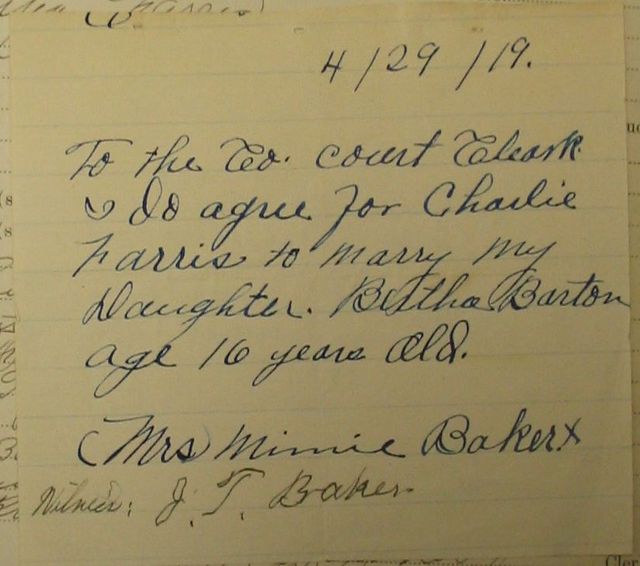 4/29/19.
To the Co. court Cleark
I do agree for Charlie
Farris to marry my
Daughter. Bertha Barton
age 16 years old.
Mrs Minnie Baker x
Witness: J. T. Baker